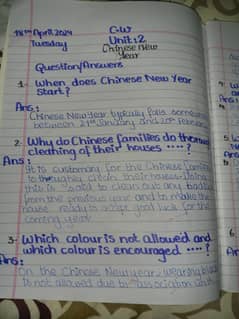 18th April 2024 C.W
Tuesday Unit: 2
Chinese New
Year
Question/Answers
1- When does Chinese New Year
Start?
Ans:
Chinese New Year typically falls
between 21st January and 20th February
2- Why do Chinese families do
of their houses ....?
Ans:
It is customary for the Chinese families
to clean their houses.
this is to clean out any bad
from the previous year and to make the
house ready to luck for the
coming year
3- Which colour is not allowed and
which colour is encouraged ....?
Ans:
On the Chinese New year, wearing
is not allowed due to association